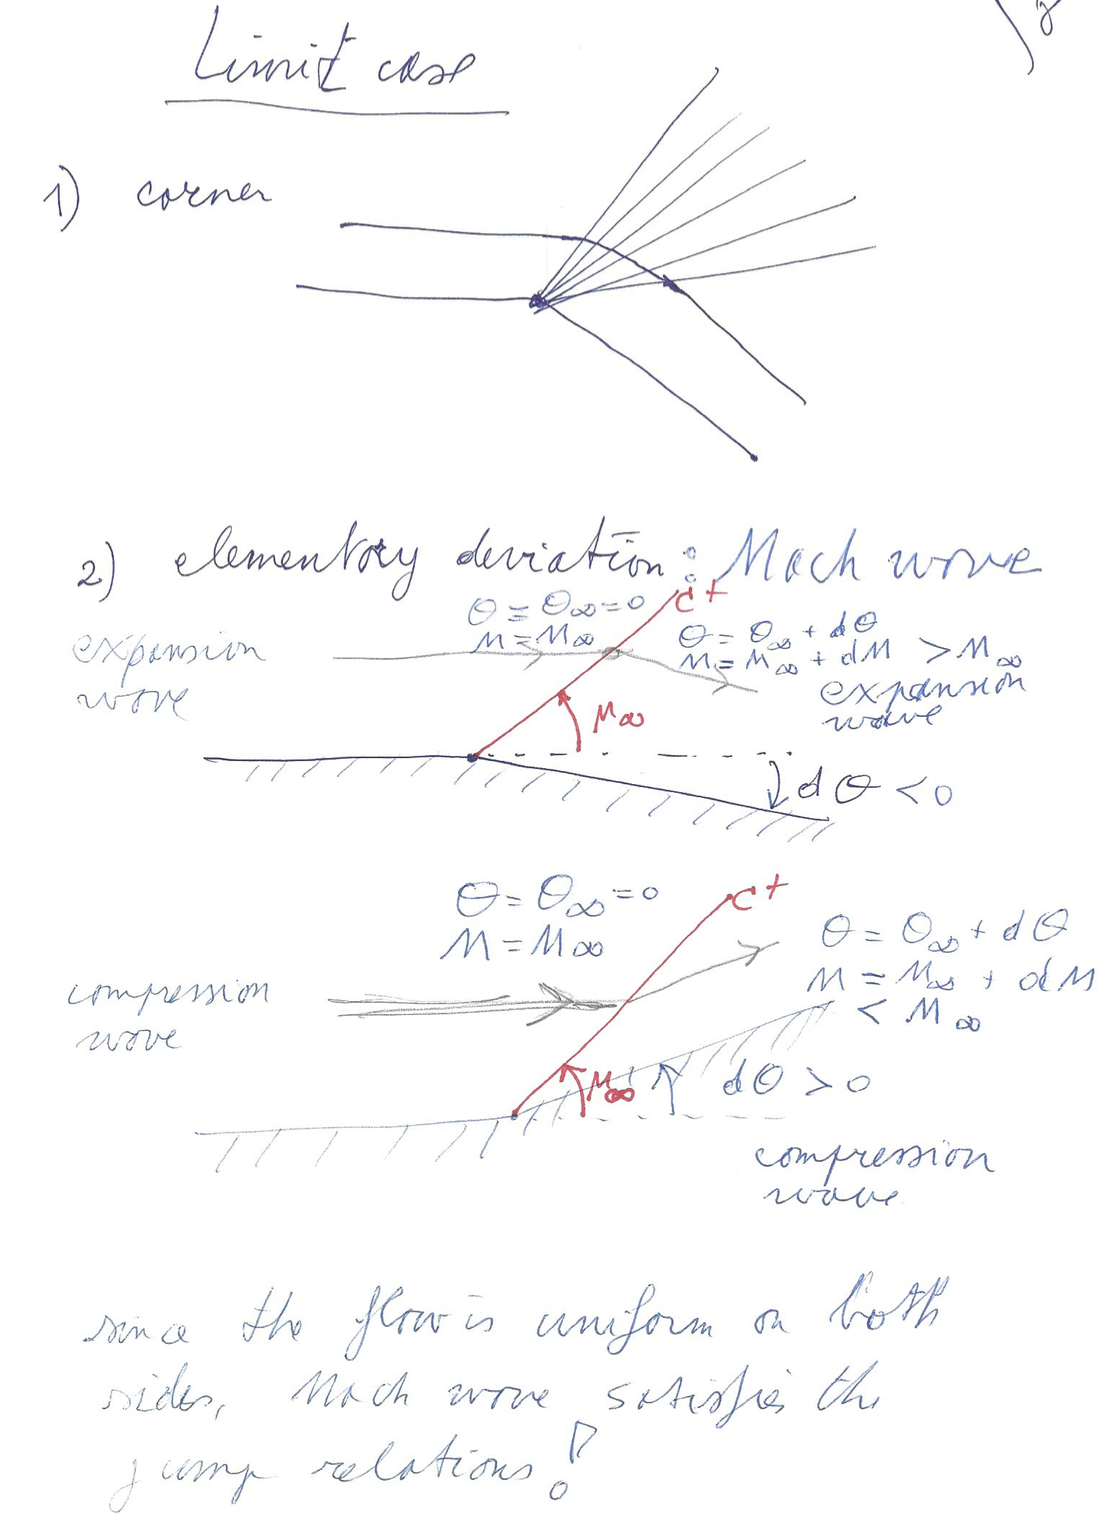 Limit case
1) corner
2) elementary deviation : Mach wave
C+
θ = θ∞ = 0
M = M∞
θ = θ∞ + dθ
M = M∞ + dM > M∞
expansion
wave
expansion
wave
μ∞
dθ < 0
θ = θ∞ = 0
M = M∞
C+
θ = θ∞ + dθ
M = M∞ + dM
< M∞
compression
wave
μ∞
dθ > 0
compression
wave
since the flow is uniform on both
sides, Mach wave satisfies the
jump relations !